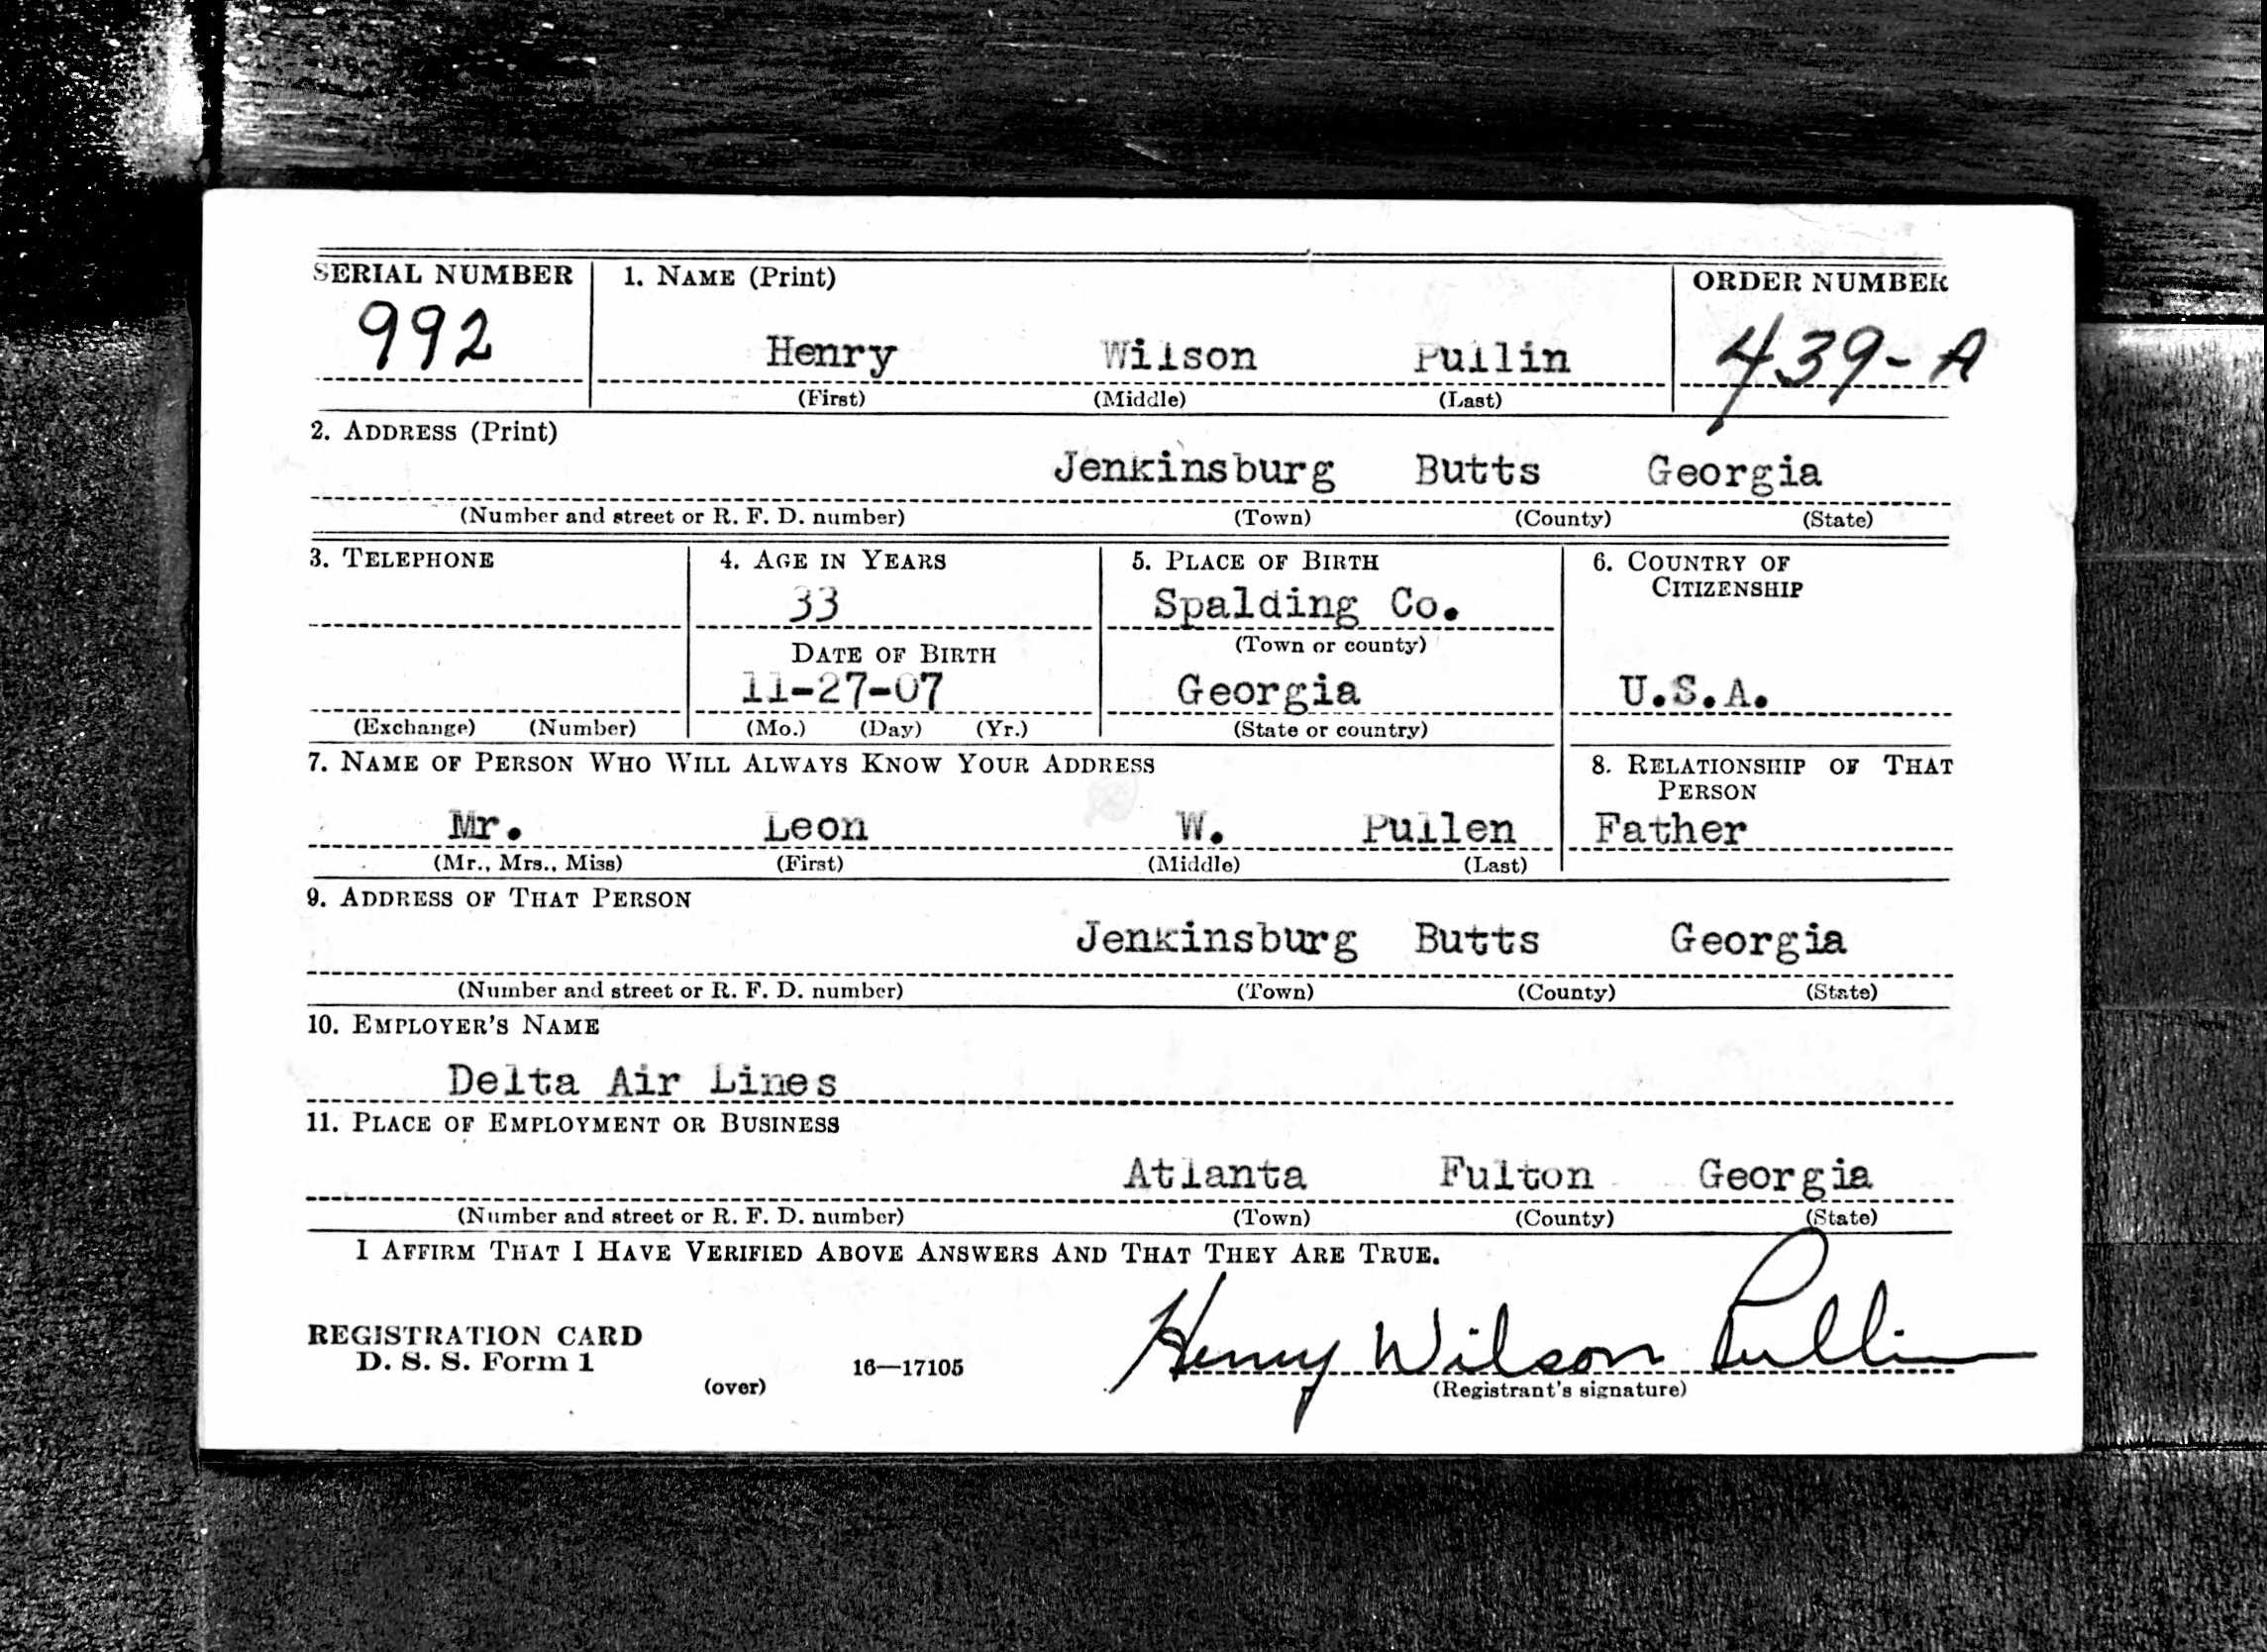 SERIAL NUMBER 1. NAME (Print) ORDER NUMBER
992 Henry Wilson Pullin 439-A
(First) (Middle) (Last)
2. ADDRESS (Print)
Jenkinsburg Butts Georgia
(Number and street or R. F. D. number) (Town) (County) (State)
3. TELEPHONE 4. AGE IN YEARS 5. PLACE OF BIRTH 6. COUNTRY OF
CITIZENSHIP
33 Spalding Co.
DATE OF BIRTH (Town or county)
11-27-07 Georgia U.S.A.
(Exchange) (Number) (Mo.) (Day) (Yr.) (State or country)
7. NAME OF PERSON WHO WILL ALWAYS KNOW YOUR ADDRESS 8. RELATIONSHIP OF THAT
PERSON
Mr. Leon W. Pullen Father
(Mr., Mrs., Miss) (First) (Middle) (Last)
9. ADDRESS OF THAT PERSON
Jenkinsburg Butts Georgia
(Number and street or R. F. D. number) (Town) (County) (State)
10. EMPLOYER'S NAME
Delta Air Lines
11. PLACE OF EMPLOYMENT OR BUSINESS
Atlanta Fulton Georgia
(Number and street or R. F. D. number) (Town) (County) (State)
I AFFIRM THAT I HAVE VERIFIED ABOVE ANSWERS AND THAT THEY ARE TRUE.
REGISTRATION CARD
D. S. S. Form 1 16—17105 Henry Wilson Pullin
(over) (Registrant's signature)